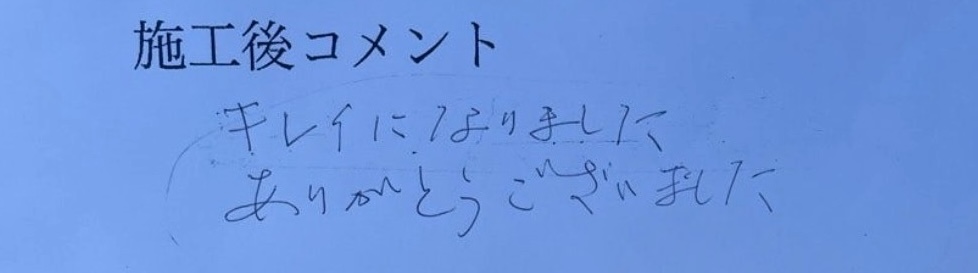 施工後コメント
キレイになりました
ありがとうございました